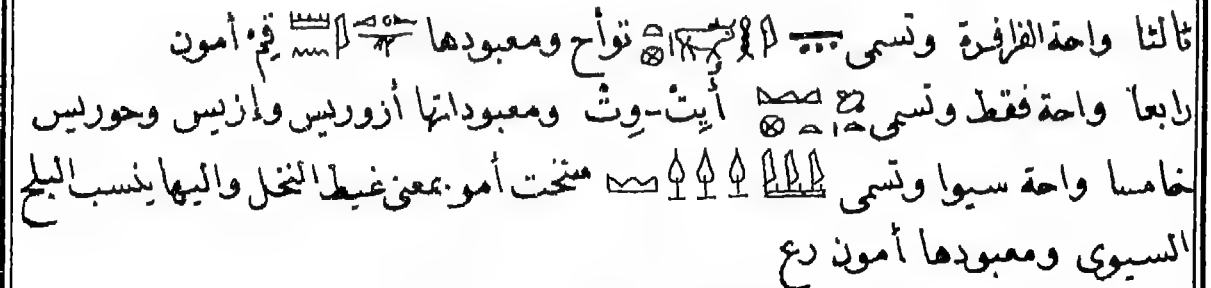 ثالثا واحة الفرافرة وتسمى توأح ومعبودها قم أمون
رابعا واحة فقط وتسمى أُيِتْ-وِتْ ومعبوداتها أزوريس وإزيس وحوريس
خامسا واحة سيوا وتسمى سخت أمو بمعنى غيط النخل واليها ينسب البلح
السيوى ومعبودها أمون رع